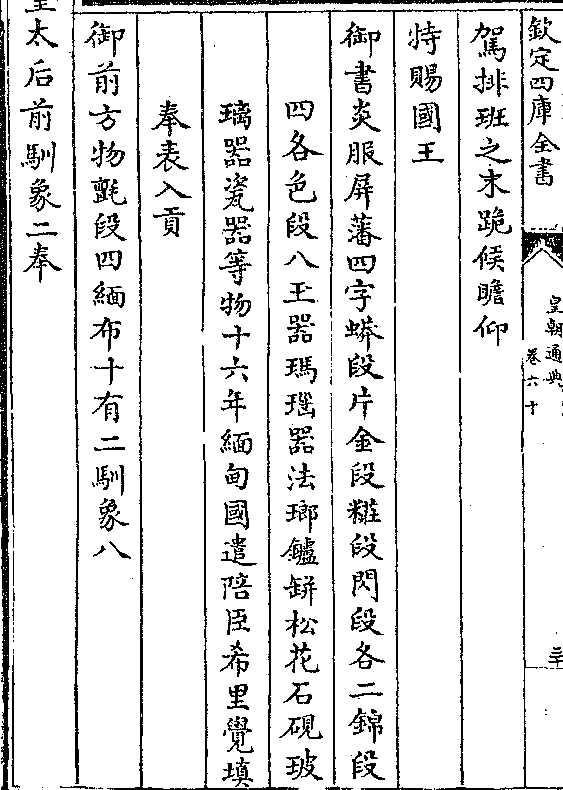 欽定四庫全書
皇朝通典
卷六十
駕排班之末跪候瞻仰
特賜國王
御書炎服屏藩四字蟒段片金段糚段閃段各二錦段
四各色段八玉器瑪瑙器法瑯鑪缾松花石硯玻
璃器瓷器等物十六年緬甸國遣陪臣希里覺填
奉表入貢
御前方物氈段四緬布十有二馴象八
皇太后前馴象二奉